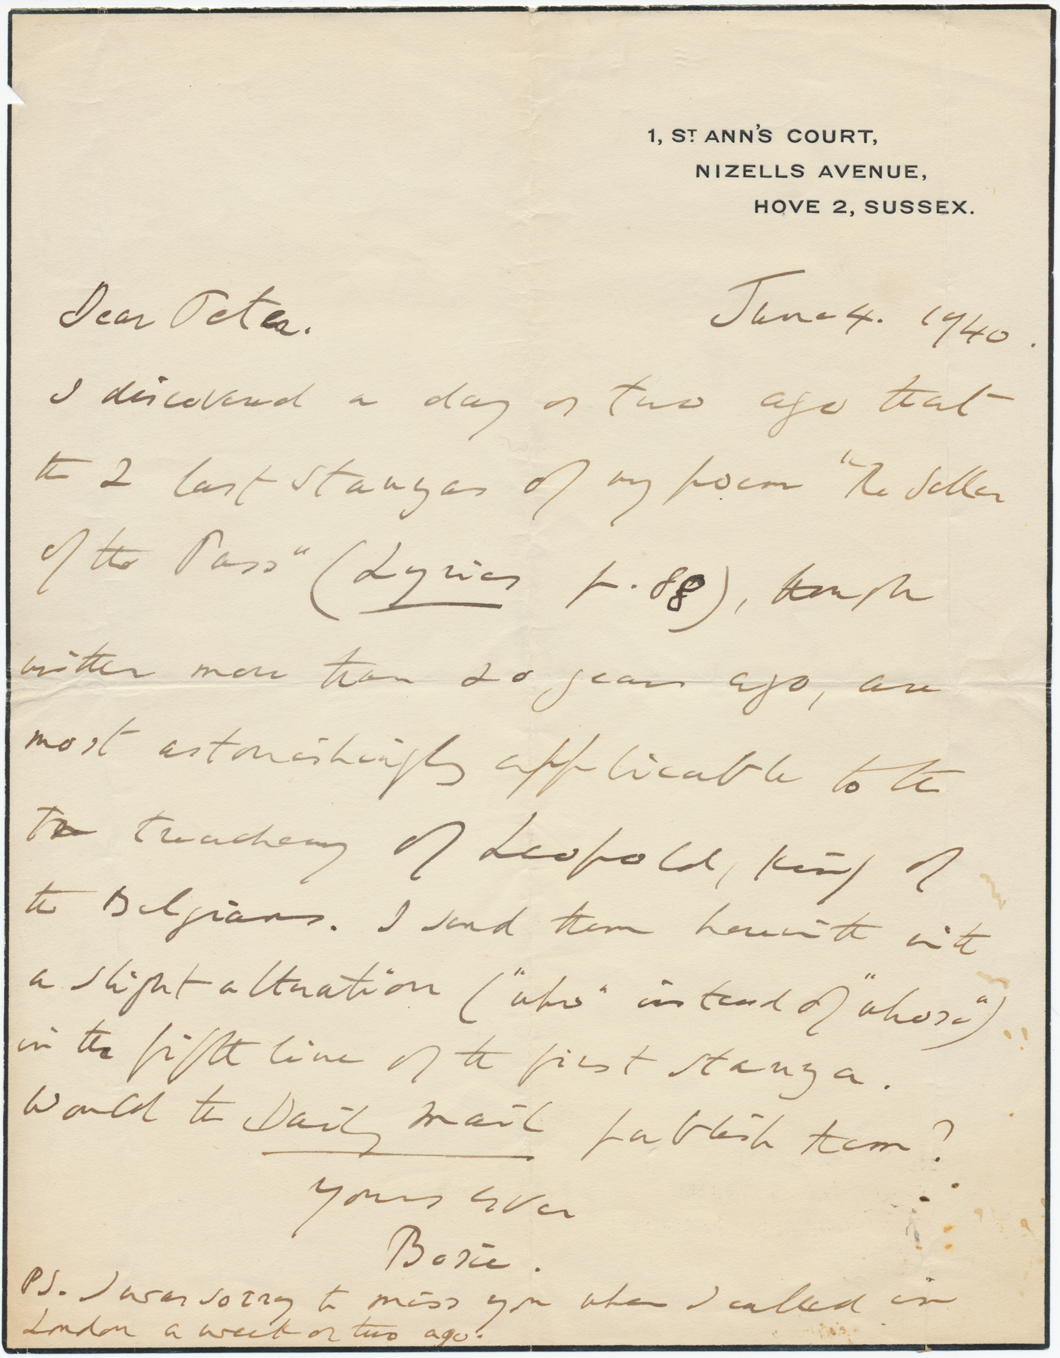 1, ST ANN'S COURT,
NIZELLS AVENUE,
HOVE 2, SUSSEX.
Dear Peter. June 4. 1940.
I discovered a day or two ago that
the 2 last stanzas of my poem "The Seller
of the Pass" (Lyrics p. 88), though
written more than 20 years ago, are
most astonishingly applicable to the
treachery of Leopold, King of
the Belgians. I send them herewith with
a slight alteration ("who" instead of "whose")
in the fifth line of the first stanza.
Would the Daily Mail publish them?
Yours ever
Bosie.
PS. I was sorry to miss you when I called in
London a week or two ago.